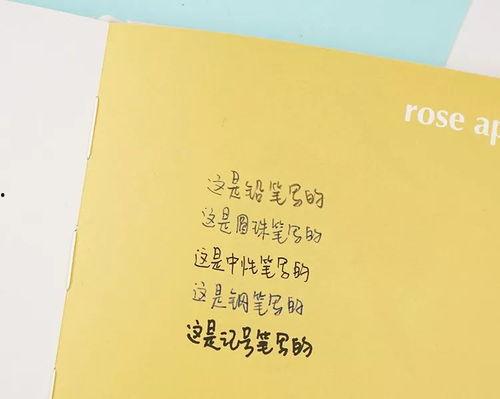 rose ap
这是铅笔写的
这是圆珠笔写的
这是中性笔写的
这是钢笔写的
这是记号笔写的